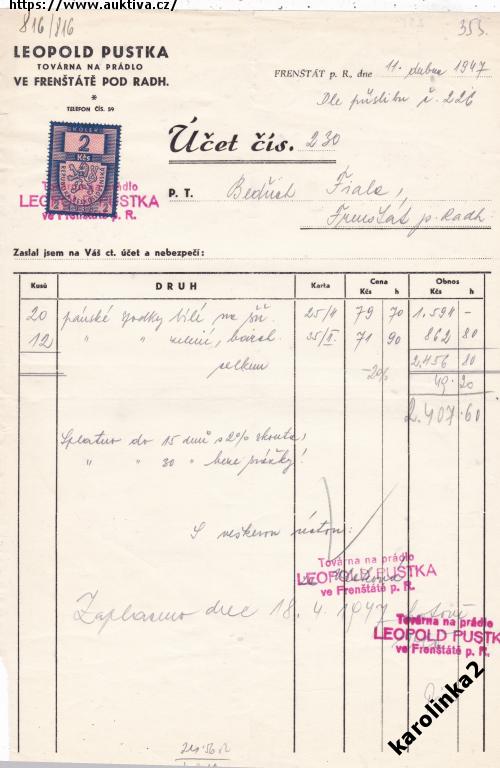 https://www.auktiva.cz/
816/816
353.
LEOPOLD PUSTKA
TOVÁRNA NA PRÁDLO
VE FRENŠTÁTĚ POD RADH.
*
TELEFON ČÍS. 59
FRENŠTÁT p. R., dne 11. dubna 1947
Dle příslibu č. 226
KOLEK
2
Kčs
Účet čís. 230
Továrna na prádlo
LEOPOLD PUSTKA
ve Frenštátě p. R.
P. T. Bedřich Fiala,
Frenštát p. Radh.
Zaslal jsem na Váš ct. účet a nebezpečí:
Kusů DRUH Karta Cena Obnos
Kčs h Kčs h
20 pánské spodky bílé na 25/II 79 70 1.594 -
12 " " 35/II. 71 90 862 80
celkem 2.456 80
-2% 49 20
2.407.60
Splatno do 15 dnů s 2% skonta,
" " 30 " beze srážky!
S veškerou úctou:
Továrna na prádlo
LEOPOLD PUSTKA
ve Frenštátě p. R.
Zaplaceno dne 18. 4. 1947 hotově
Továrna na prádlo
LEOPOLD PUSTKA
ve Frenštátě p. R.
karolinka2